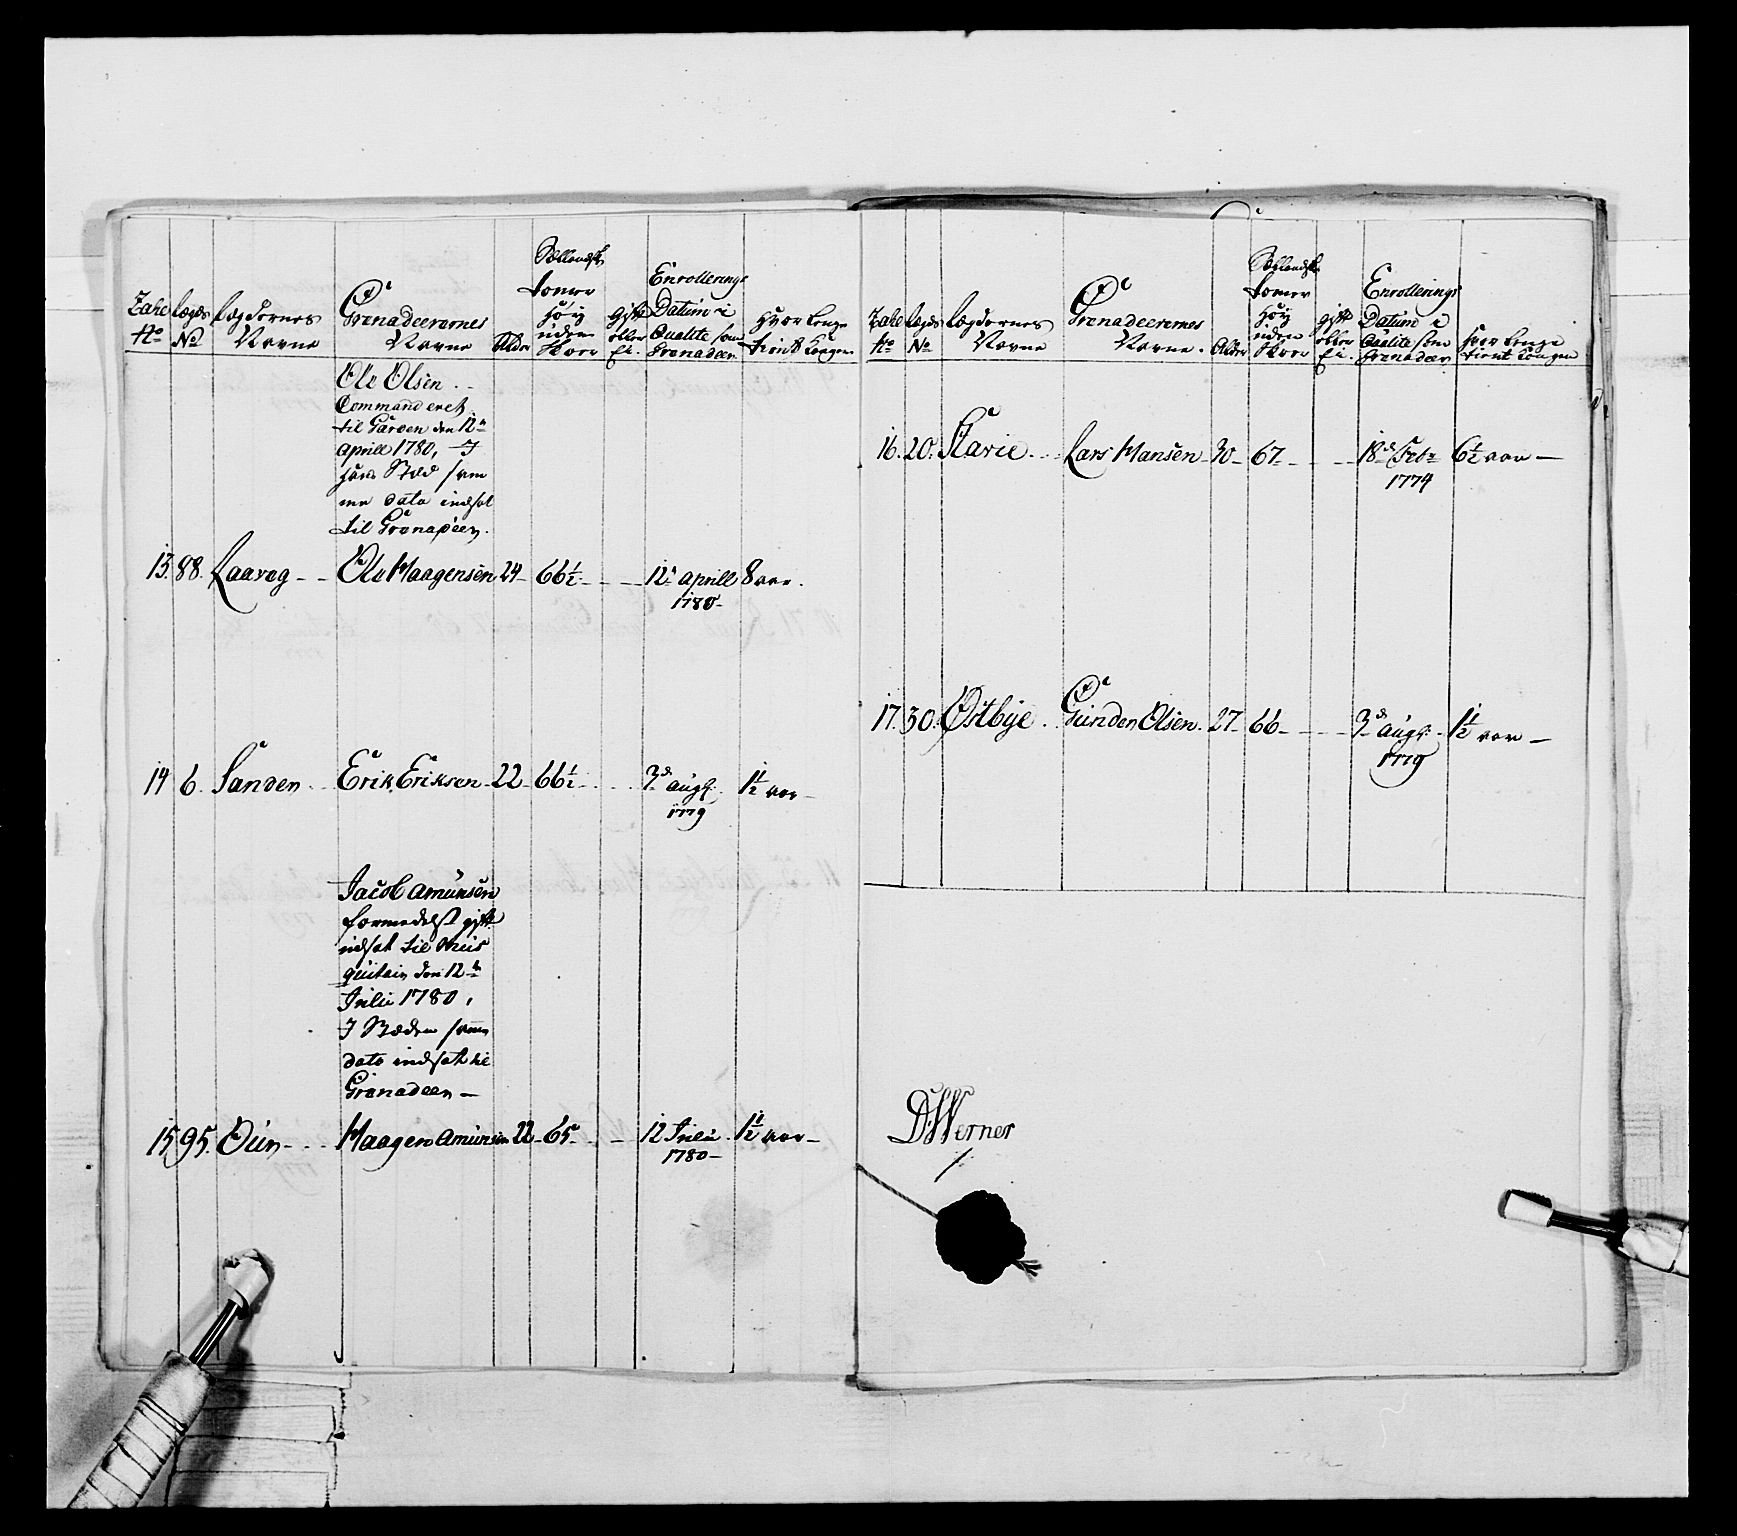 Zahl No
Lægds No
Lægdernes Navne
Grenadeerernes Navne
Alder
Sællandsk tomer høy uden Skoer
gift eller Ei.
Enrollerings Datum i Qualite som Grenadeer
Hvor lenge tient Kongen
Ole Olsen . .
Commanderet
til Garden den 12te
Aprill 1780, I
hans Stæd sam
me dato indsat
til Grenadeer.
13. 88. Laavog - - Ole Haagensen 24 - 66½ - - - 12te Aprill 1780 - 8 aar.
14 6. Sanden - - Erik Eriksen - 22 - 66½ - - - 3de Augst. 1779 1½ aar -
Jacob Amunsen
formedelst gift
indsat til Mus
quitair den 12te
Julii 1780,
I Stæden samme
dato indsat til
Grenadeer -
15 95. Duun - - - Haagen Amunsen 22 - 65 - - - 12 Julii 1780 - 1½ aar -
Zahl No
Lægds No
Lægdernes Navne
Grenadeerernes Navne.
Alder
Sællandsk tomer høy uden Skoer
gift eller Ei.
Enrollerings Datum i Qualite som Grenadeer
Hvor lenge tient Kongen
16. 20. Starie - - - Lars Hansen - 30 - 67 - - - 18de Febr 1774 6½ aar -
17. 30. Østbye - Gunder Olsen - 27 - 66 - - - 3de Augst. 1779 1½ aar -
D:Werner